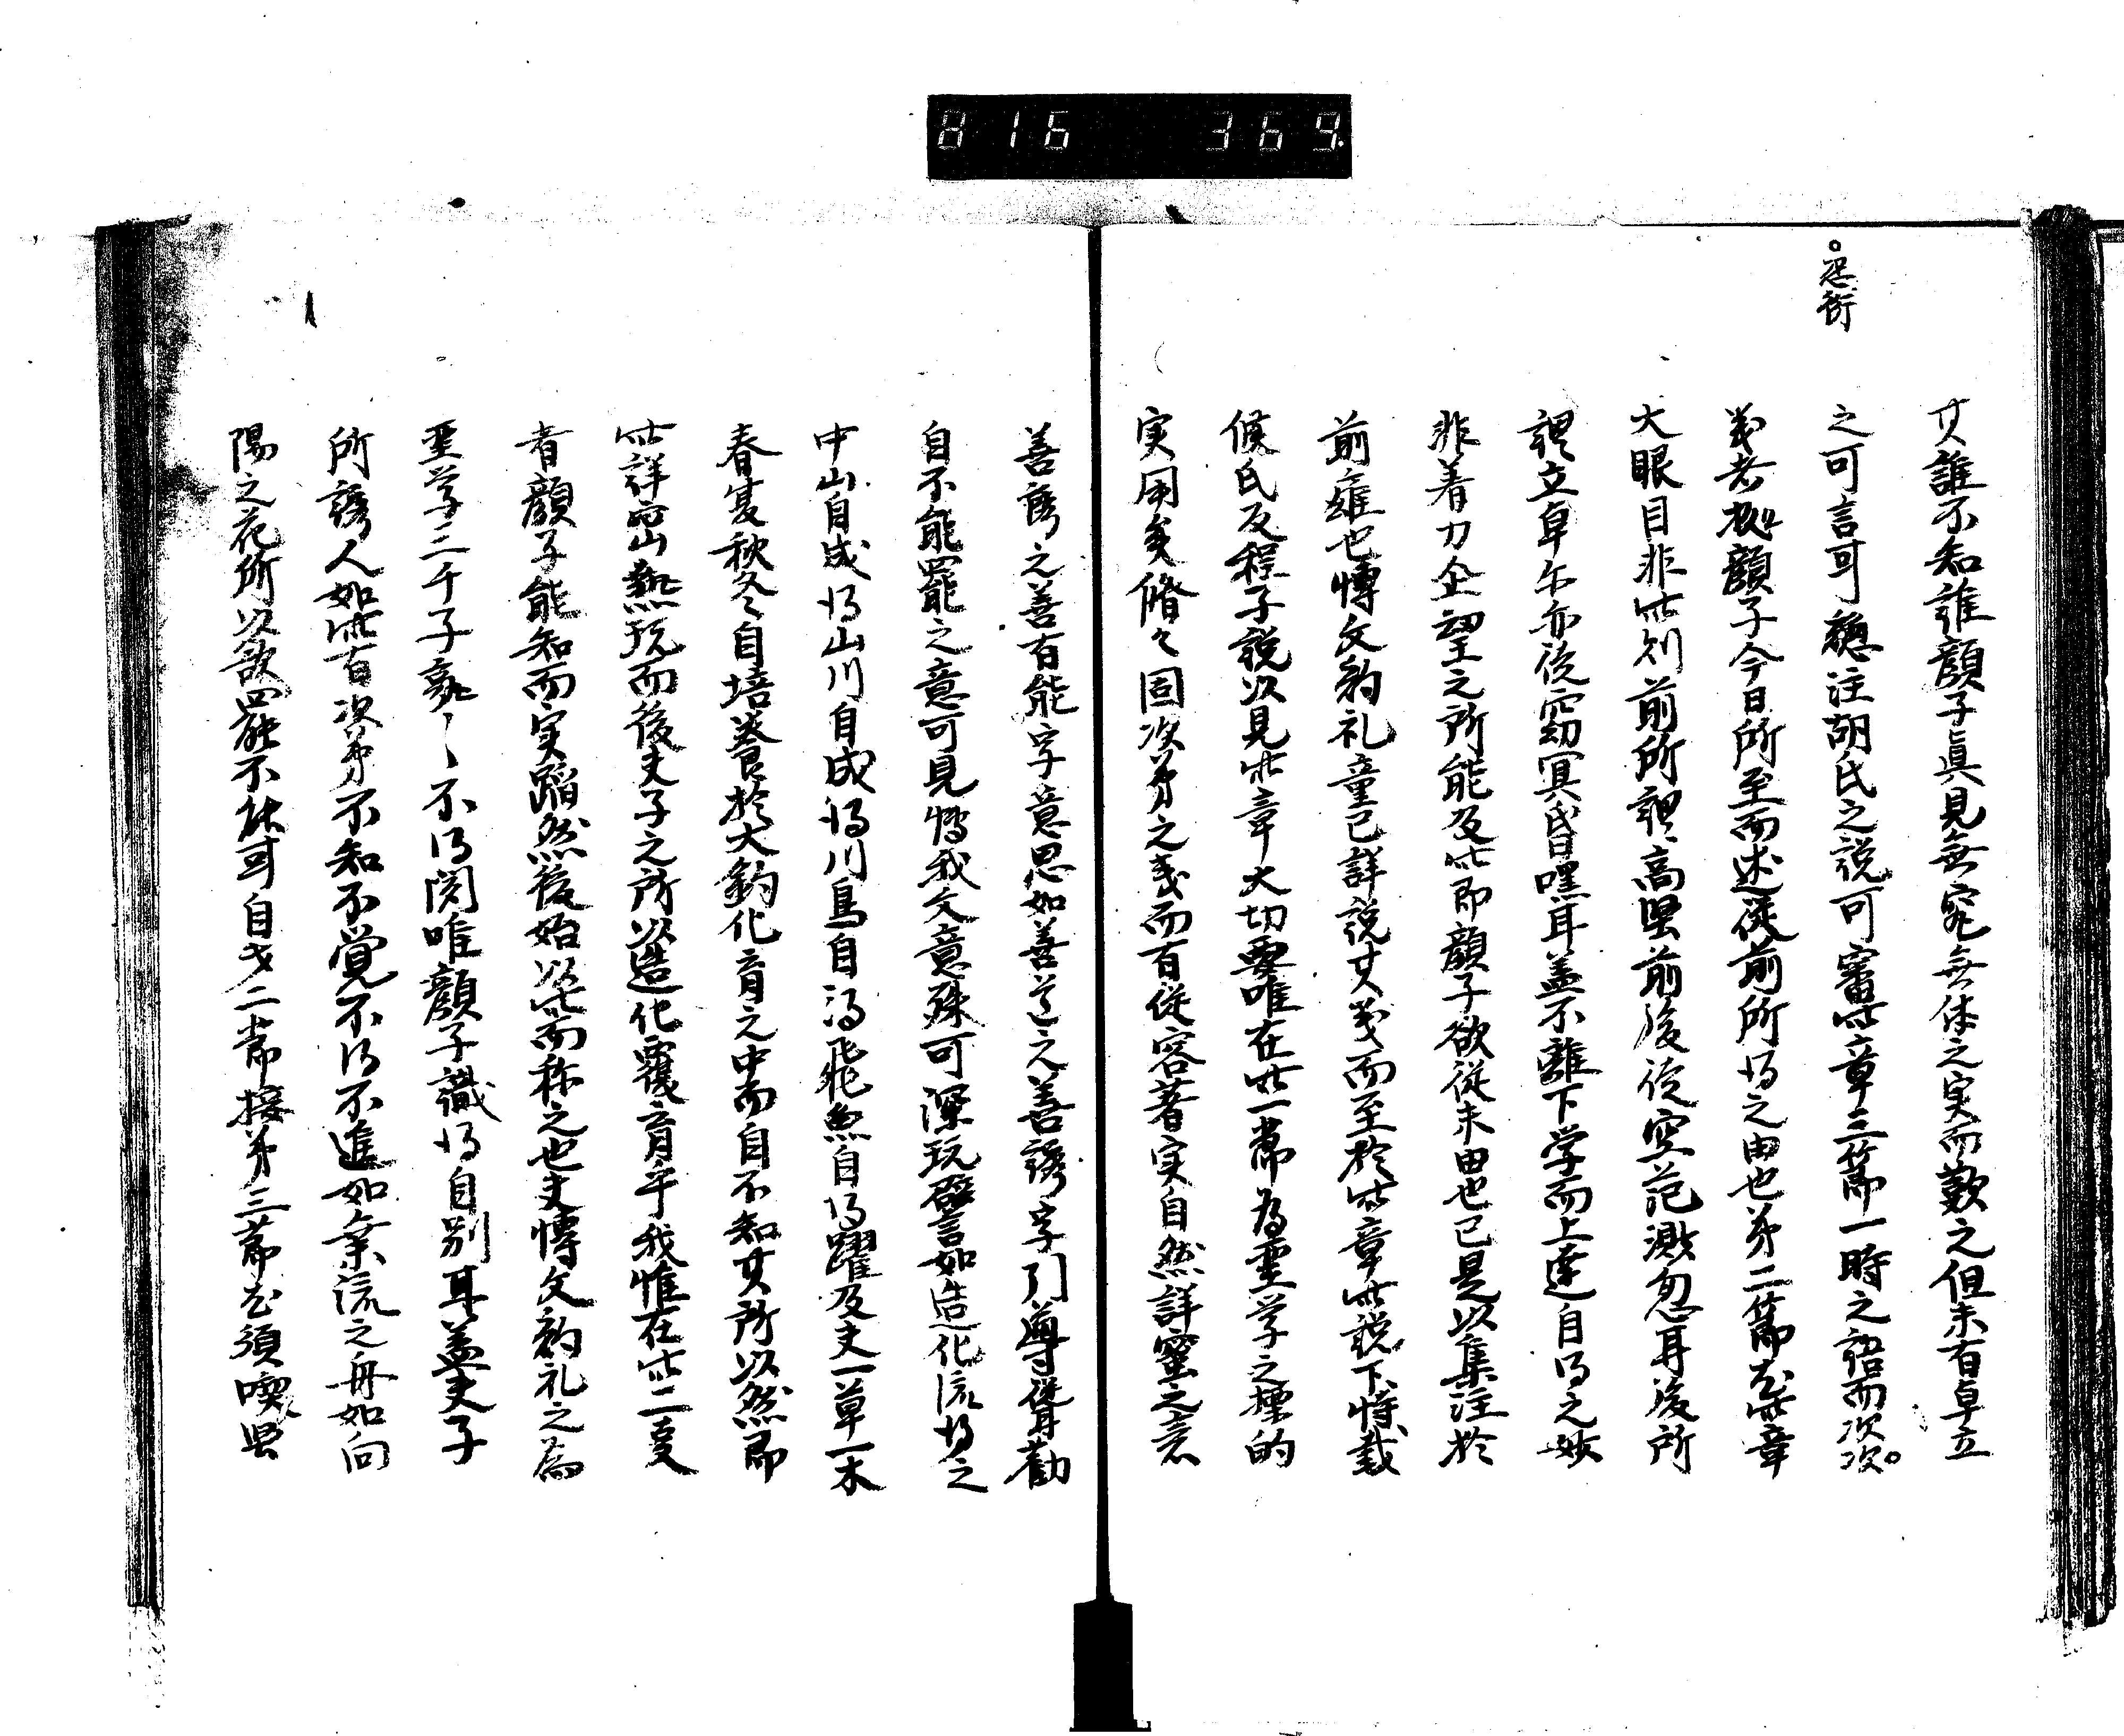 816 369
。恐衍
其誰不知誰顔子眞見無窮無体之実而歎之但未有卓立
之可言可穏注胡氏之説可審此章三節一時之語而次次。
義者拠顔子今日所至而述從前所得之由也第二節尤此章
大眼目非此則前所謂高堅前後徒空范濙忽耳後所
謂立卓尓亦徒窈冥昏嘿耳盖不離下学而上達自得之妙
非着力企望之所能及此即顔子欲従末由也已是以集注於
前雍也博文約礼章已詳説其義而至於此章此説下特載
侯氏及程子説以見此章大切要唯在此一節為聖学之標的
実用矣循々固次第之義而有従容著実自然詳蜜之意
善誘之善有能字意思如善道之善誘字引導從耳勧
自不能罷之意可見博我文意殊可深玩譬言如造化流得之
中山自成得山川自成得川鳥自得飛魚自得躍及夫一草一木
春夏秋冬自培養於大鈞化育之中而自不知其所以然即
此詳密熟玩而後夫子之所以造化覆育乎我惟在此二事
者顔子能知而実蹈然後始以此而称之也夫博文約礼之為
聖学二千子孰〻不得関唯顔子識得自別耳盖夫子
所誘人如此有次第不知不覚不得不進如乗流之舟如向
陽之花所以欲罷不能可自求二節接第三節尤須喫